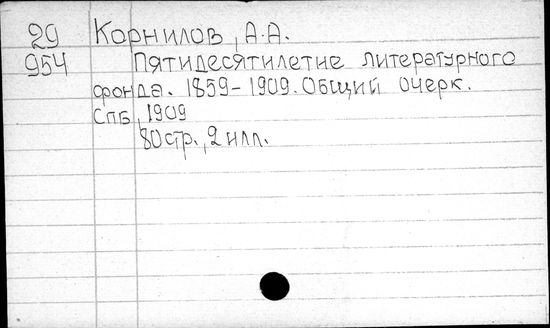 29 Корнилов, А.А.
954 Пятидесятилетие литературного
фонда. 1859-1909. Общий очерк.
СПБ, 1909
80 стр., 2 илл.